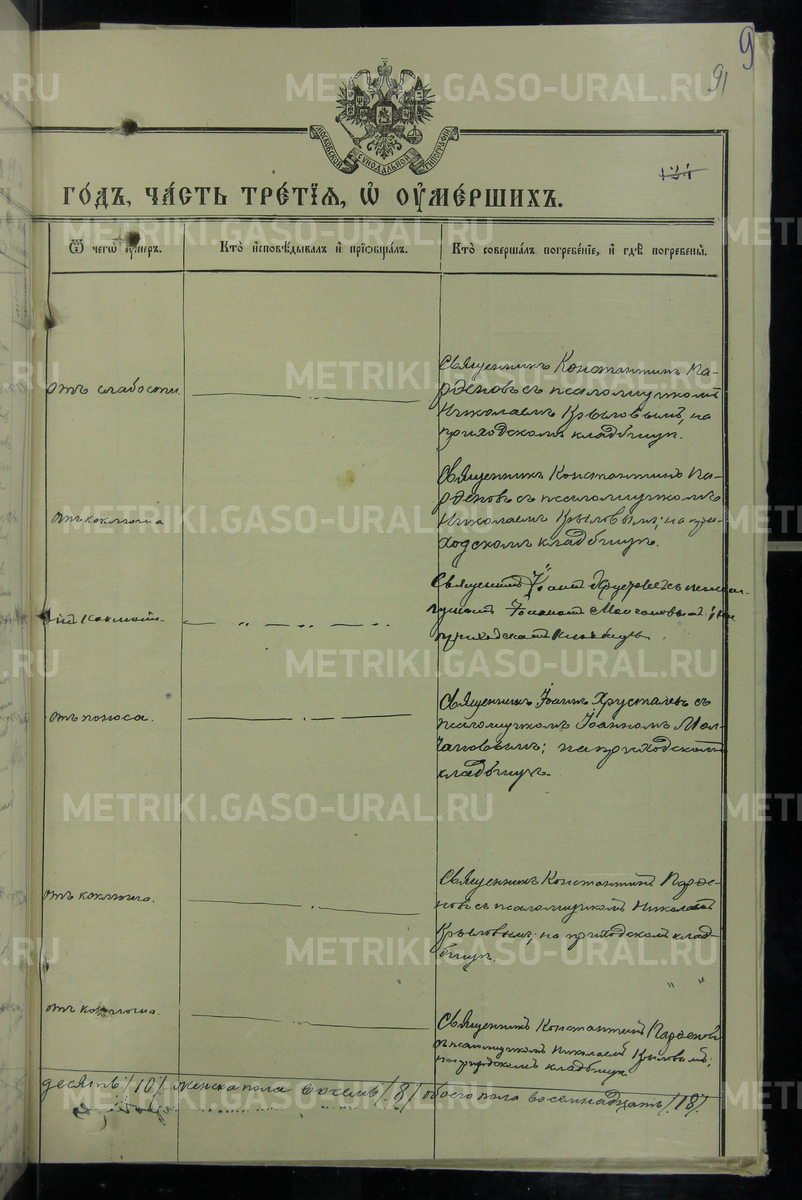 METRIKI.GASO-URAL.RU
9
91
МОСКОВСКОЙ СѴНОДАЛЬНОЙ ТИПОГРАФІИ
121
ГО́ДЪ, ЧА́СТЬ ТРЕ́ТІЯ, Ѡ ОУМЕ́РШИХЪ.
Ѿ чегѡ̀ ᲂу҆́меръ.
Кто̀ и҆сповѣ́дывалъ и҆ прїѡбща́лъ.
Кто̀ соверша́лъ погребе́нїе, и҆ гдѣ̀ погребены̀.
Отъ слабости.
Священникъ Константинъ Па-
рѳеновъ съ псаломщикомъ
Николаемъ Крыловымъ, на
приходскомъ кладбищѣ.
Отъ коклюша
Священникъ Константинъ Па-
рѳеновъ съ псаломщикомъ
Николаемъ Крыловымъ; на при-
ходскомъ кладбищѣ.
Священникъ Іоаннъ Хрусталевъ съ псалом-
щикомъ Іоанномъ Молчановымъ; на
приходскомъ кладбищѣ
Отъ поноса.
Священникъ Іоаннъ Хрусталевъ съ
псаломщикомъ Іоанномъ Мол-
чановымъ; на приходскомъ
кладбищѣ.
Отъ коклюша.
Священникъ Константинъ Парѳе-
новъ съ псаломщикомъ Николаемъ
Крыловымъ; на приходскомъ клад-
бищѣ.
Отъ коклюша.
Священникъ Константинъ Парѳеновъ
съ псаломщикомъ Николаемъ Крыловымъ;
на приходскомъ кладбищѣ.
десять /10/ женска пола восемь /8/ обоего пола восемнадцать /18/.